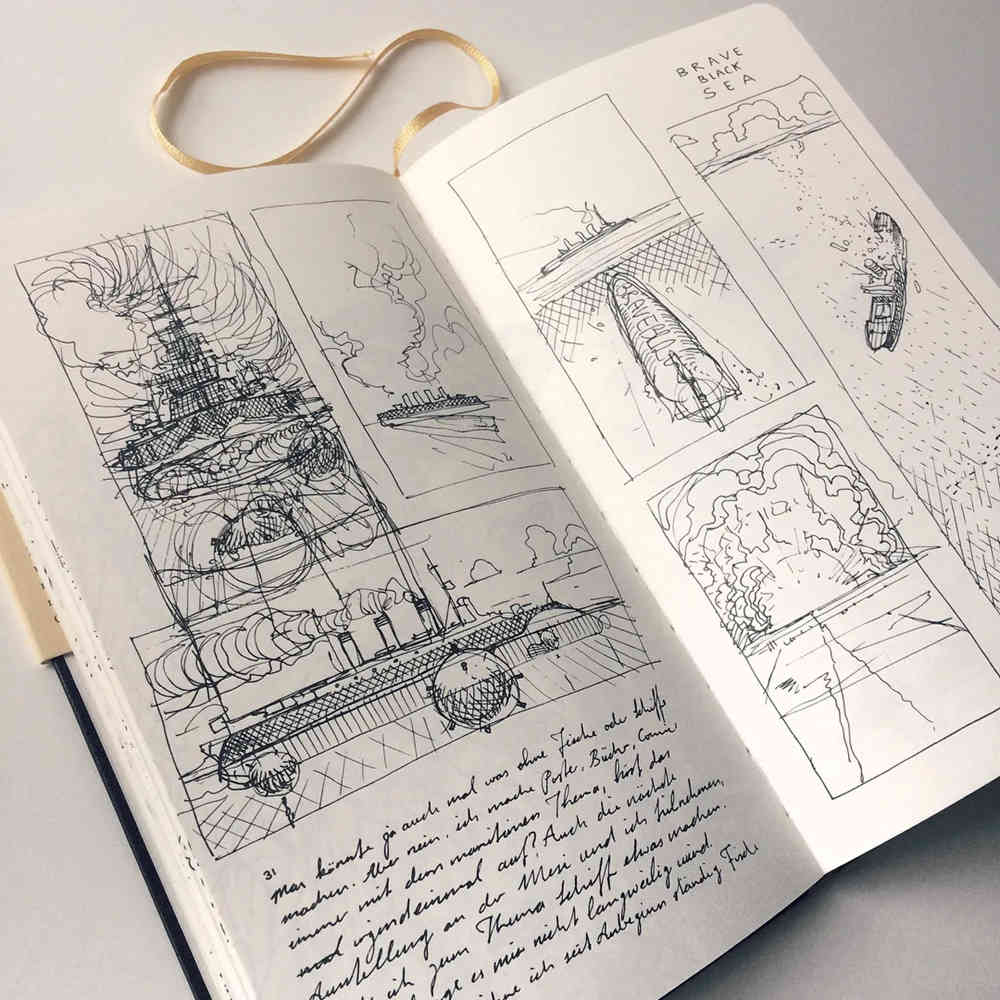 31
Man könnte ja auch mal was ohne Fische oder Schiffe
machen. Aber nein, ich mache Poster, Bücher, Comic
immer mit dem maritimen Thema, hört das
wohl irgendeinmal auf? Auch die nächste
Ausstellung an der Mesi und ich teilnehmen,
ich zum Thema Schiff etwas machen.
es mir nicht langweilig wird.
ich seit Anbeginn ständig Fisch
BRAVE
BLACK
SEA